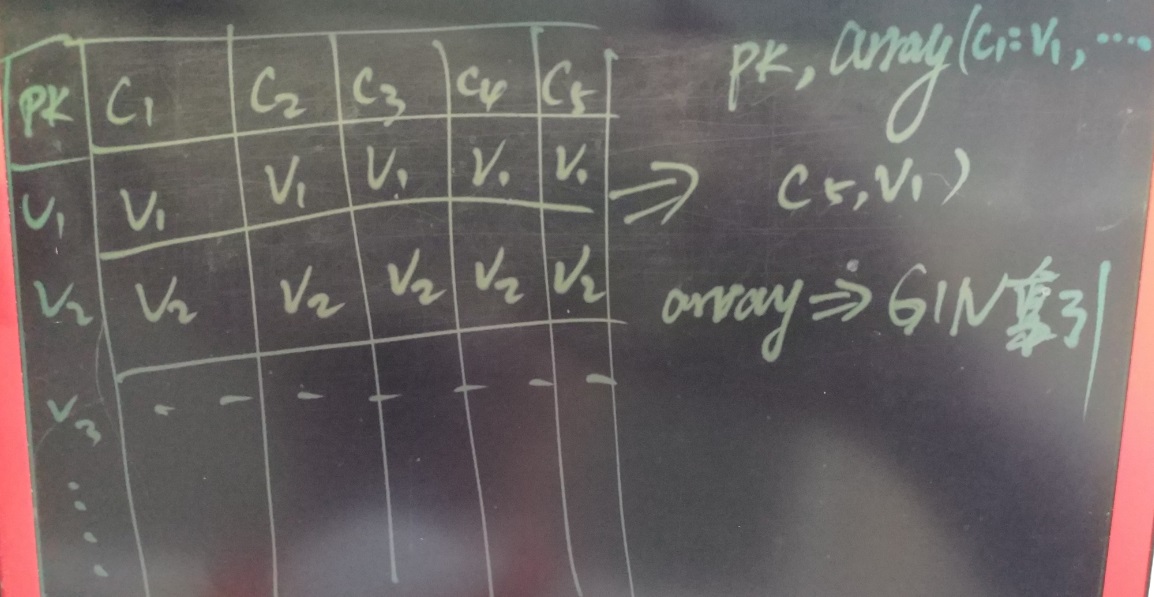 PK C1 C2 C3 C4 C5
V1 V1 V1 V1 V1 V1
V2 V2 V2 V2 V2 V2
V3
PK, array(C1:V1, ....
C5,V1)
array⇒GIN索引